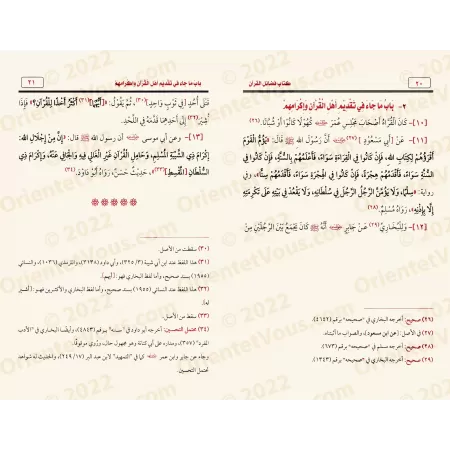 كتاب فضائل القرآن
٢٠
٢- باب ما جاء في تقديم أهل القرآن وإكرامهم
[١٠]- كَانَ القُرَّاءُ أَصْحَابَ مَجْلِسِ عُمَرَ كُهُولًا كَانُوا أَوْ شُبَّانًا.(٢٦)
[١١]- عَنْ [أَبِي مَسْعُودٍ](٢٧) أَنَّ رَسُولَ اللهِ ﷺ قَالَ: «يَؤُمُّ القَوْمَ
أَقْرَؤُهُمْ لِكِتَابِ اللهِ، فَإِنْ كَانُوا فِي القِرَاءَةِ سَوَاءً، فَأَعْلَمُهُمْ بِالسُّنَّةِ، فَإِنْ كَانُوا
فِي السُّنَّةِ سَوَاءً، فَأَقْدَمُهُمْ هِجْرَةً، فَإِنْ كَانُوا فِي الهِجْرَةِ سَوَاءً، فَأَقْدَمُهُمْ سِنًّا»، وفي
رواية: «سِلْمًا، وَلَا يَؤُمَّنَّ الرَّجُلُ الرَّجُلَ فِي سُلْطَانِهِ، وَلَا يَقْعُدْ فِي بَيْتِهِ عَلَى تَكْرِمَتِهِ
إِلَّا بِإِذْنِهِ»، رَوَاهُ مُسْلِمٌ.(٢٨)
[١٢]- وَلِلْبُخَارِيِّ(٢٩) عَنْ جَابِرٍ أَنَّهُ ﷺ كَانَ يَجْمَعُ بَيْنَ الرَّجُلَيْنِ مِنْ
(٢٦) صحيح: أخرجه البخاري في "صحيحه" برقم (٤٦٤٢).
(٢٧) في الأصل: (عن ابن مسعود)، والصواب ما أثبتناه.
(٢٨) صحيح: أخرجه مسلم في "صحيحه" برقم (٦٧٣).
(٢٩) صحيح: أخرجه البخاري في "صحيحه" برقم (١٣٤٣).
باب ما جاء في تقديم أهل القرآن وإكرامهم
٢١
قَتْلَى أُحُدٍ [فِي ثَوْبٍ وَاحِدٍ](٣٠)، ثُمَّ يَقُولُ: «[أَيُّهُمَا](٣١) أَكْثَرُ أَخْذًا لِلْقُرْآنِ؟» فَإِذَا
أُشِيرَ(٣٢) إِلَى أَحَدِهِمَا قَدَّمَهُ فِي اللَّحْدِ.
[١٣]- وعن أبي موسى أن رسول الله ﷺ قال: «إِنَّ مِنْ إِجْلَالِ اللهِ:
إِكْرَامَ ذِي الشَّيْبَةِ المُسْلِمِ، وَحَامِلِ القُرْآنِ غَيْرِ الغَالِي فِيهِ وَالجَافِي عَنْهُ، وَإِكْرَامَ ذِي
السُّلْطَانِ [المُقْسِطِ](٣٣)»، حَدِيثٌ حَسَنٌ، رَوَاهُ أَبُو دَاوُد.(٣٤)
(٣٠) سقطت من الأصل.
(٣١) هذا اللفظ عند ابن أبي شيبة (٣٢٥/٣)، وأبي داود (٣١٣٨)، والترمذي (١٠٣٦)، والنسائي
(١٩٥٥) بسند صحيح، وأما لفظ البخاري فهو: [أيهم].
(٣٢) هذا اللفظ عند النسائي (١٩٥٥) بسند صحيح، وأما لفظ البخاري والأكثرين فهو: [أشير
له].
(٣٣) سقط من الأصل.
(٣٤) محتمل التحسين: أخرجه أبو داود في "سننه" برقم (٤٨٤٣)، وأيضًا البخاري في "الأدب
المفرد" (٣٥٧)، ومداره على أبي كنانة وهو مجهول حال، ورُوي موقوفًا.
وجاء عن جابر وابن عمر كما في "التمهيد" لابن عبد البر (٢٤٩/١٧)، والحديث له شواهد
محتمل التحسين.
OrientetVous.com © 2022